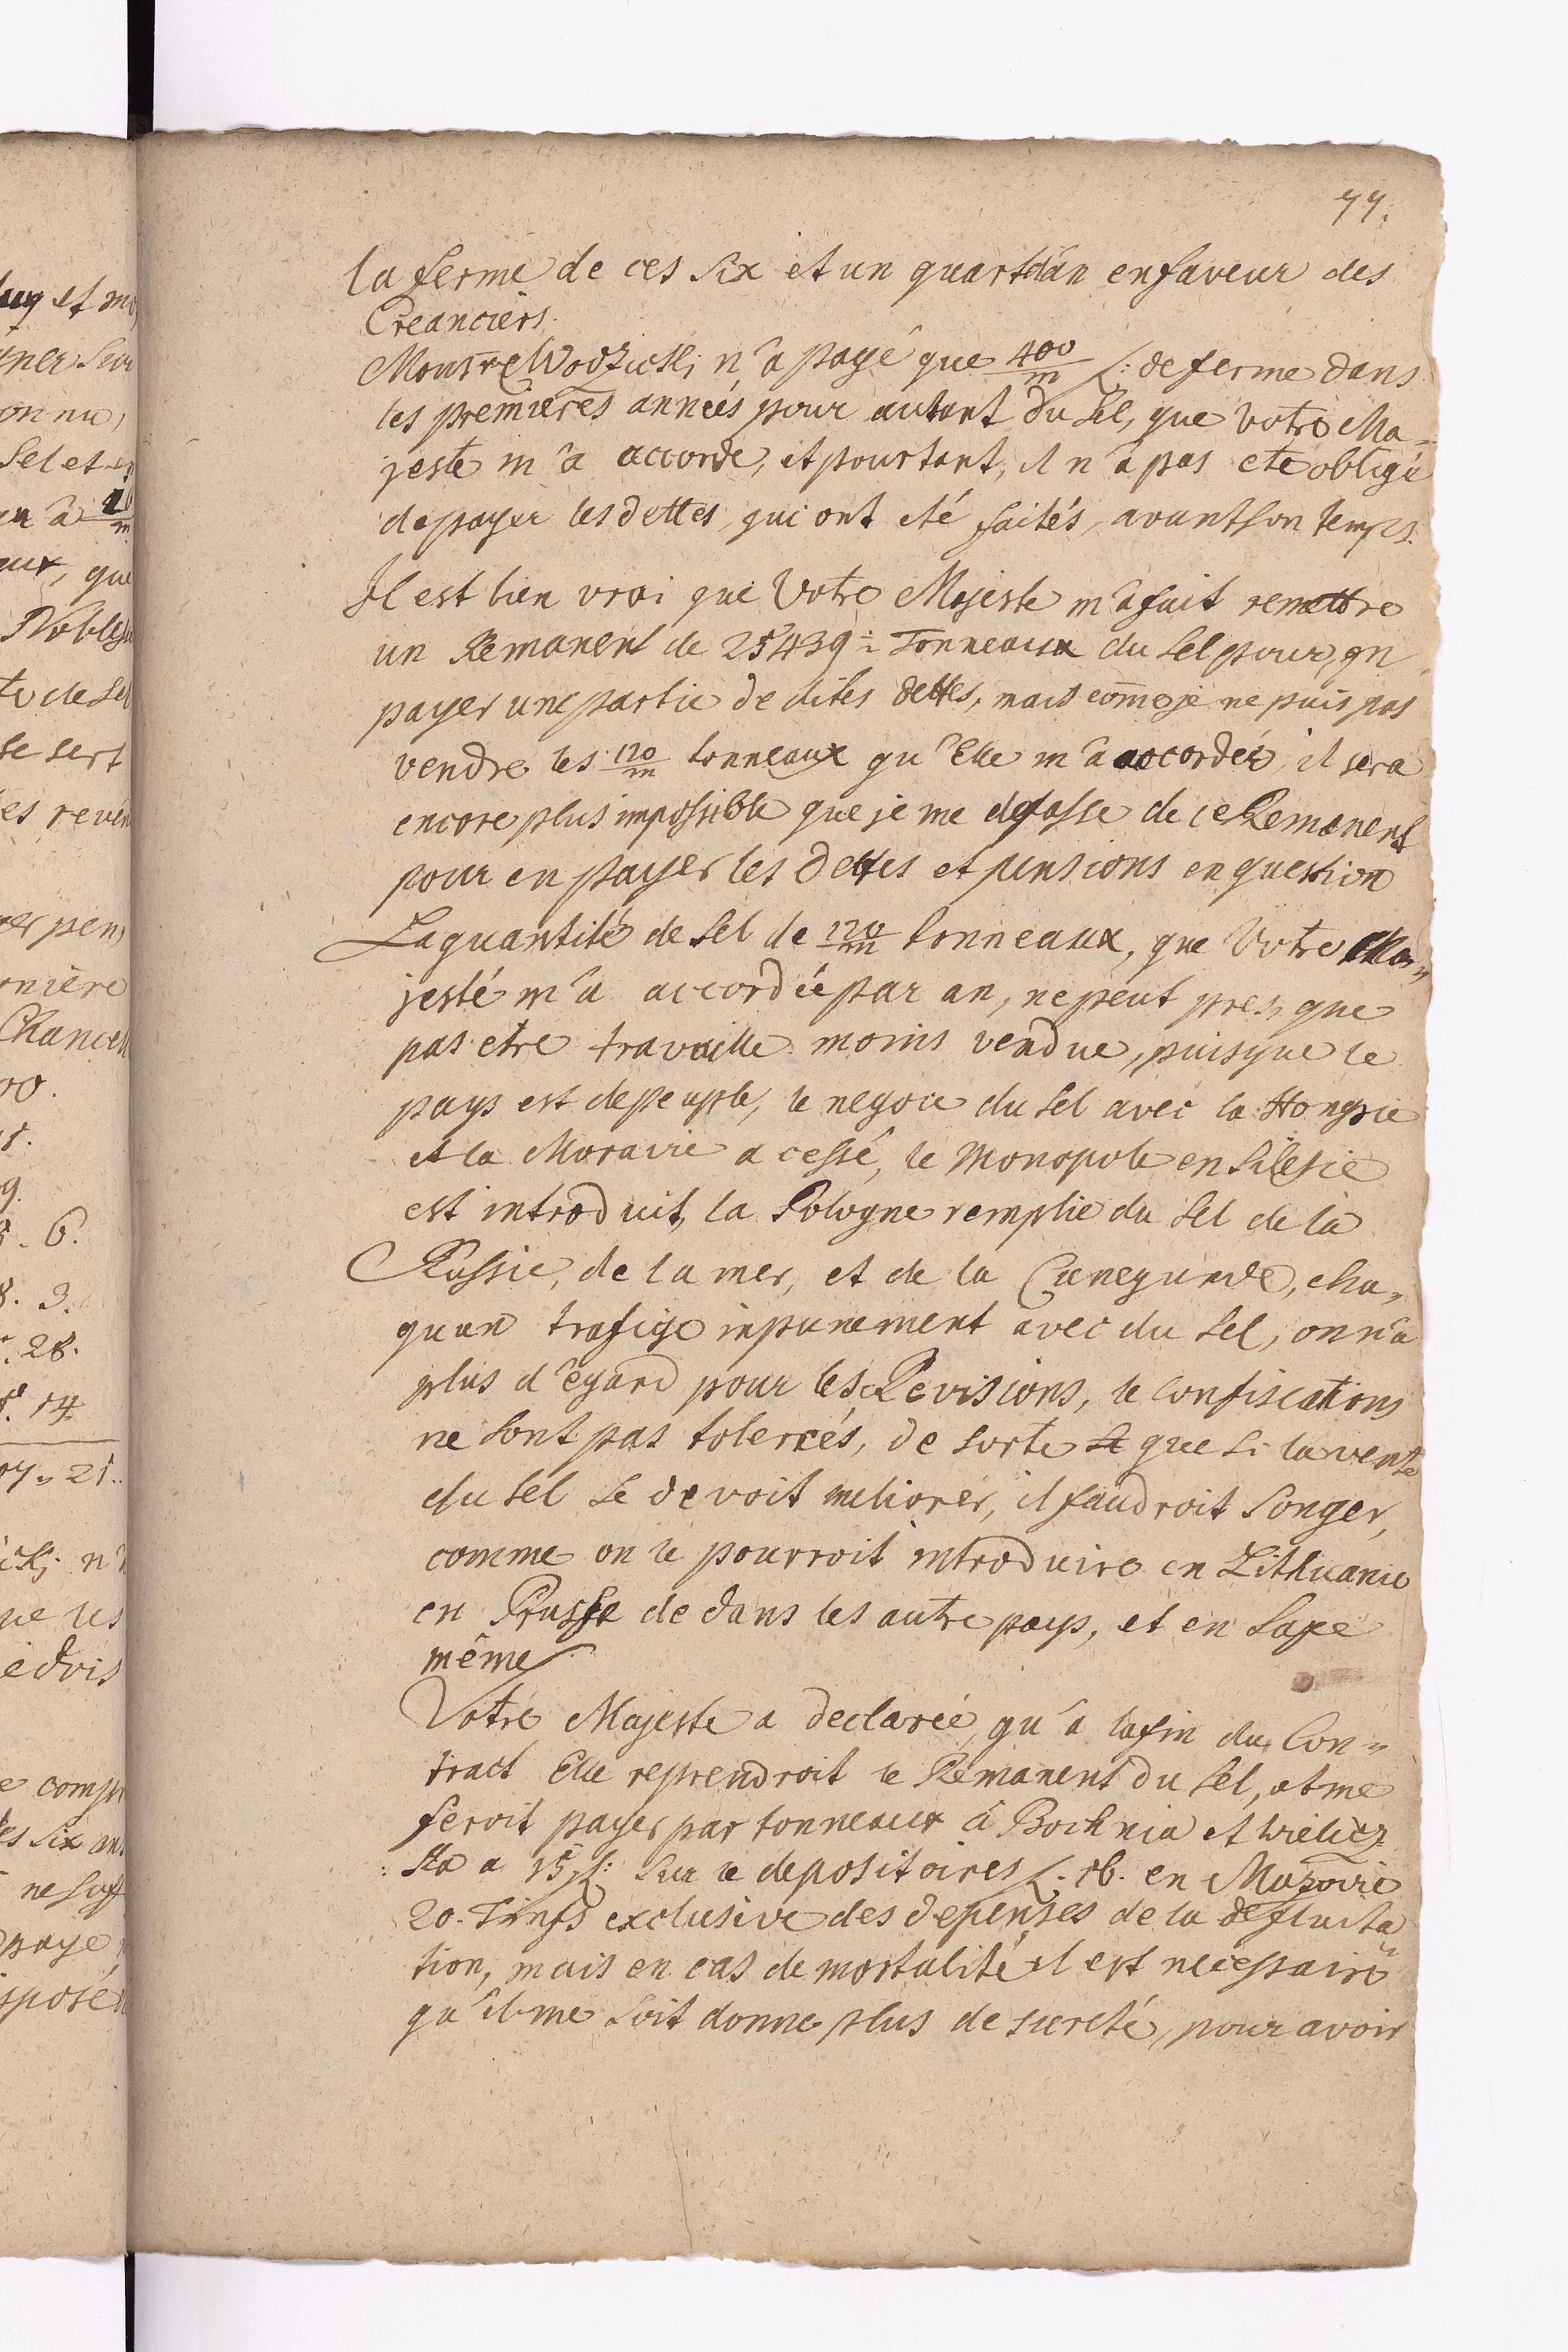 77.
la ferme de ces six et un quart d'an en faveur des
Creanciers.
Monsr Wodzicki n'a payé que 400/m f: de ferme dans
les premieres années pour autant du Sel, que Votre Ma-
jesté m'a accordé, et pourtant, il n'a pas eté obligé
de payer les dettes, qui ont eté faités, avant son temps.
Il est bien vrai que Votre Majeste m'a fait remettre
un Remanent de 25439 1/2 Tonneaux du Sel pour, en
payer une partie de dites dettes, mais come je ne puis pas
vendre les 120/m tonneaux qu'Elle m'a accordés, il sera
encore plus impossible que je me defasse de ce Remanent
pour en payer les dettes et pensions en question
La quantité de Sel de 120/m tonneaux, que Votre Ma-
jesté m'a accordée par an, ne peut pres, que
pas etre travaille moins vendue, puisque le
pays est depeuple, le negoce du Sel avec la Hongrie
et la Moravie a cessé, le Monopole en Silesie
est introduit, la Pologne remplie du Sel de la
Russie, de la mer, et de la Cunegunde, cha-
qu'un trafige inpunement avec du Sel, on n'a
plus d'egard pour les Revisions, le Confiscations
ne sont pas tolerées, de sorte se que si la vente
du Sel se devoit meliorer, il faudroit songer,
comme on le pourroit introduire en Lithuanie
en Prusse de dans les autre pays, et en Saxe
même
Votre Majeste a declarée, qu'a la fin du Con-
tract Elle reprendroit le Remanent du Sel, et me
feroit payer par tonneaux à Bochnia et Wielicz
:ka a 15 f: sur le depositoires f. 16. en Mazovie
20. Timfs exclusive des depenses de la defluita
tion, mais en cas de mortalité il est necessaire
qu'il me soit donne plus de sureté, pour avoir